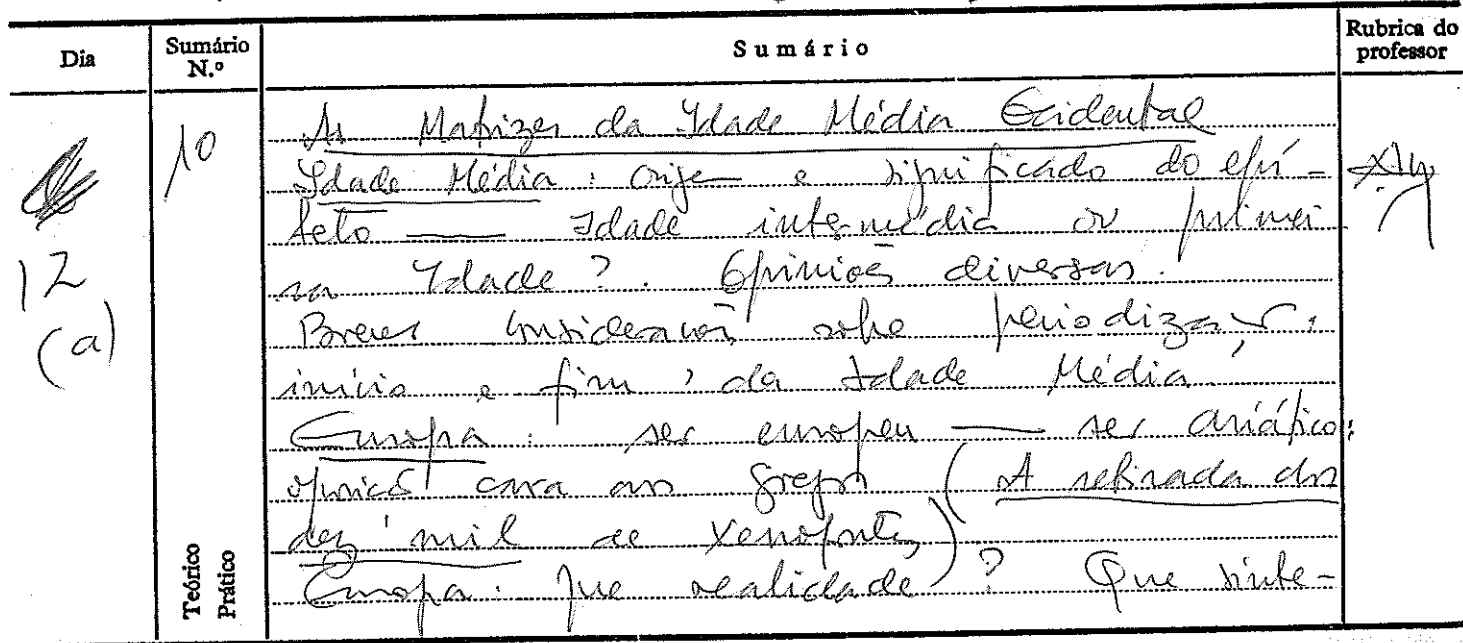 Dia
Sumário N.º
Sumário
Rubrica do professor
12
(a)
10
As Matrizes da Idade Média Ocidental
Idade Média: origem e significado do epí-
teto — Idade intermédia ou primei-
ra Idade?. Opiniões diversas.
Breves considerações sobre periodização:
início e fim da Idade Média.
Europa: ser europeu — ser asiático:
oposição cara aos gregos (A retirada dos
dez mil de Xenofonte)
Europa: que realidade? Que sínte-
Teórico
Prático